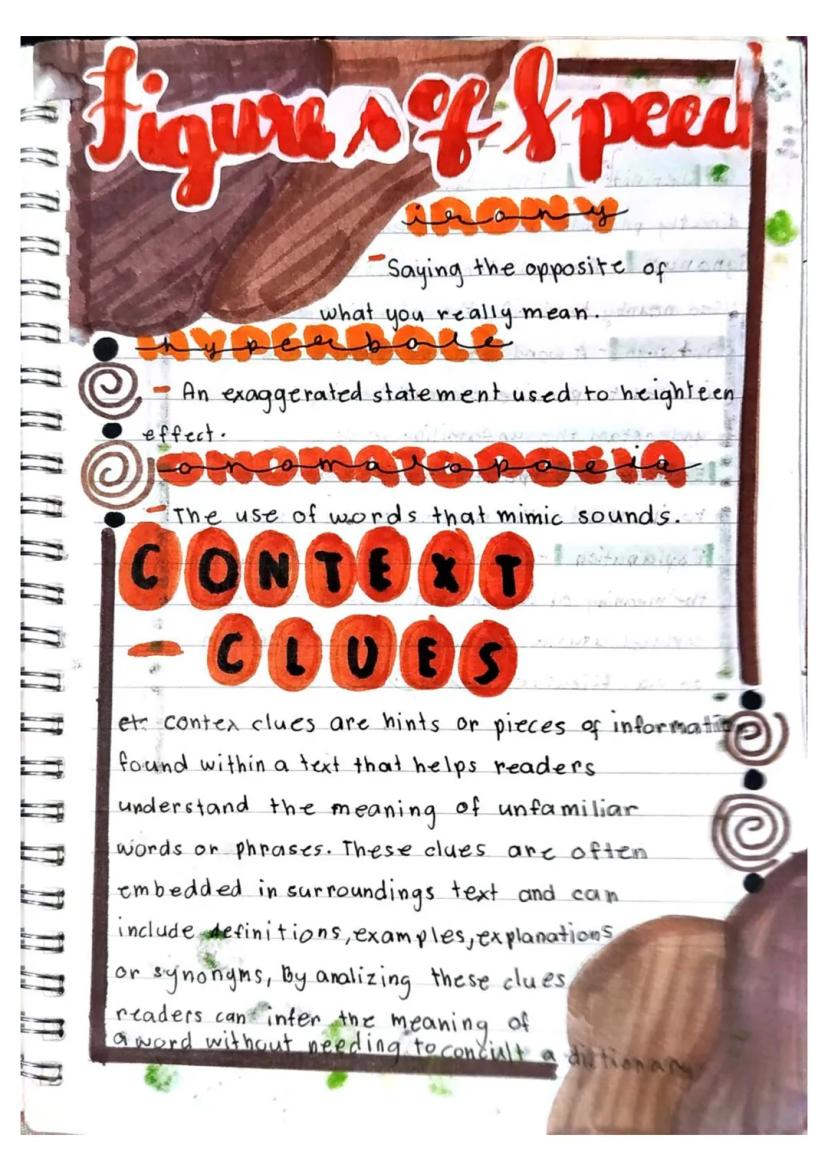 Figures of Speech
irony
- Saying the opposite of
what you really mean.
hyperbole
- An exaggerated statement used to heighteen
effect.
onomatopoeia
- The use of words that mimic sounds.
CONTEXT
- CLUES
contex clues are hints or pieces of information
found within a text that helps readers
understand the meaning of unfamiliar
words or phrases. These clues are often
embedded in surroundings text and can
include definitions, examples, explanations
or synonyms, By analizing these clues
readers can infer the meaning of
a word without needing to concult a dictionary